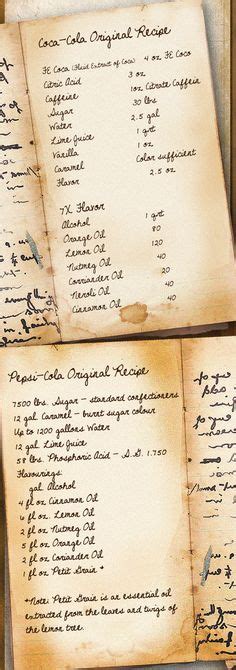 Coca-Cola Original Recipe
FE Coca (Fluid Extract of Coca) 4 oz FE Coco
Citric Acid 3 oz
Caffeine 1oz Citrate Caffein
Sugar 30 lbs
Water 2.5 gal
Lime Juice 1 qrt
Vanilla 1 oz
Caramel Color sufficient
Flavor 2.5 oz
7X Flavor
Alcohol 1 qrt
Orange Oil 80
Lemon Oil 120
Nutmeg Oil 40
Corriander Oil 20
Neroli Oil 40
Cinnamon Oil 40
Pepsi-Cola Original Recipe
7500 lbs. Sugar - standard confectioners
12 gal. Caramel - burnt sugar colour
Up to 1200 gallons Water
12 gal. Lime Juice
58 lbs. Phosphoric Acid - S.G. 1.750
Flavourings:
gal. Alcohol
4 fl oz. Cinnamon Oil
6 fl oz. Lemon Oil
2 fl oz. Nutmeg Oil
5 fl oz. Orange Oil
2 fl oz. Coriander Oil
1 fl oz. Petit Grain *
*Note: Petit Grain is an essential oil
extracted from the leaves and twigs of
the lemon tree.